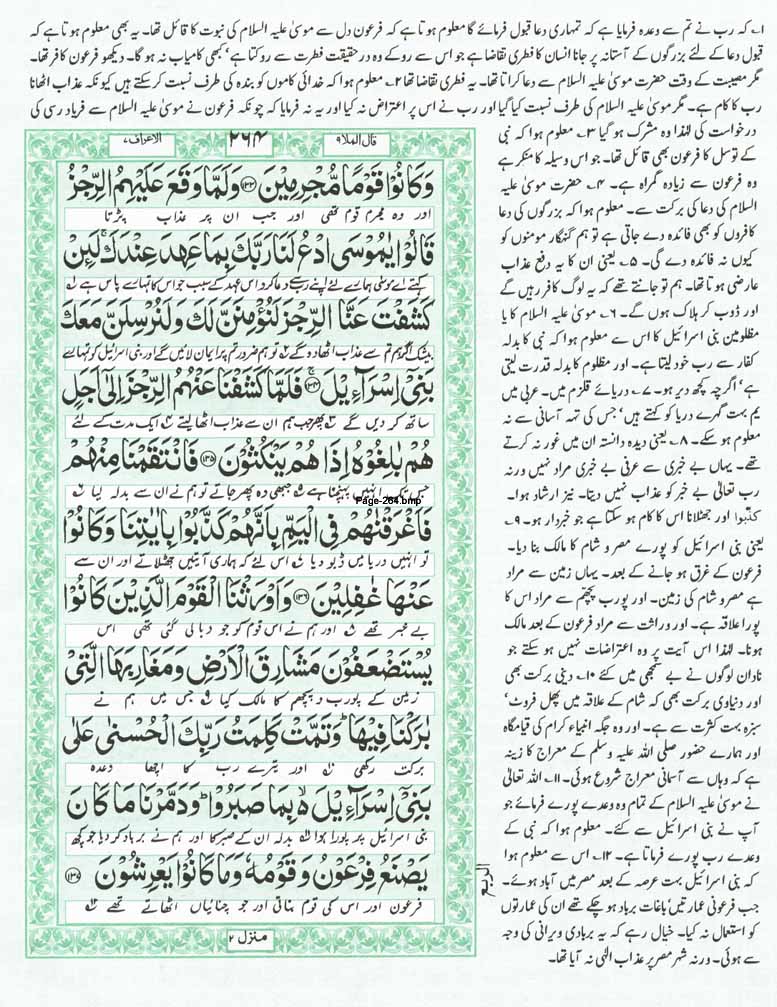 ۱؎ کہ رب نے تم سے وعدہ فرمایا ہے کہ تمہاری دعا قبول فرمائے گا معلوم ہوتا ہے کہ فرعون دل سے موسیٰ علیہ السلام کی نبوت کا قائل تھا۔ یہ بھی معلوم ہوتا ہے کہ
قبول دعا کے لئے بزرگوں کے آستانہ پر جانا انسان کا فطری تقاضا ہے جو اس سے روکے وہ در حقیقت فطرت سے روکتا ہے‘ کبھی کامیاب نہ ہو گا۔ دیکھو فرعون کافر تھا۔
مگر مصیبت کے وقت حضرت موسیٰ علیہ السلام سے دعا کراتا تھا۔ یہ فطری تقاضا تھا ۲؎ معلوم ہوا کہ خدائی کاموں کو بندہ کی طرف نسبت کر سکتے ہیں کیونکہ عذاب اٹھانا
رب کا کام ہے۔ مگر موسیٰ علیہ السلام کی طرف نسبت کیا گیا اور رب نے اس پر اعتراض نہ کیا اور یہ نہ فرمایا کہ چونکہ فرعون نے موسیٰ علیہ السلام سے فریاد رسی کی
درخواست کی لہٰذا وہ مشرک ہو گیا ۳؎ معلوم ہوا کہ نبی
کے توسل کا فرعون بھی قائل تھا۔ جو اس وسیلہ کا منکر ہے
وہ فرعون سے زیادہ گمراہ ہے۔ ۴؎ حضرت موسیٰ علیہ
السلام کی دعا کی برکت سے۔ معلوم ہوا کہ بزرگوں کی دعا
کافروں کو بھی فائدہ دے جاتی ہے تو ہم گنہگار مومنوں کو
کیوں نہ فائدہ دے گی۔ ۵؎ یعنی ان کا یہ دفع عذاب
عارضی ہوتا تھا۔ ہم تو جانتے تھے کہ یہ لوگ کافر رہیں گے
اور ڈوب کر ہلاک ہوں گے۔ ۶؎ موسیٰ علیہ السلام کا یا
مظلومین بنی اسرائیل کا اس سے معلوم ہوا کہ نبی کا بدلہ
کفار سے رب خود لیتا ہے۔ اور مظلوم کا بدلہ قدرت لیتی
ہے‘ اگرچہ کچھ دیر ہو۔ ۷؎ دریائے قلزم میں۔ عربی میں
یم بہت گہرے دریا کو کہتے ہیں‘ جس کی تہہ آسانی سے نہ
معلوم ہو سکے۔ ۸؎ یعنی دیدہ دانستہ ان میں غور نہ کرتے
تھے۔ یہاں بے خبری سے عرفی بے خبری مراد نہیں ورنہ
رب تعالیٰ بے خبر کو عذاب نہیں دیتا۔ نیز ارشاد ہوا۔
کذبوا اور جھٹلانا اس کا کام ہو سکتا ہے جو خبردار ہو۔ ۹؎
یعنی بنی اسرائیل کو پورے مصر و شام کا مالک بنا دیا۔
فرعون کے غرق ہو جانے کے بعد۔ یہاں زمین سے مراد
ہے مصر و شام کی زمین۔ اور پورب پچھم سے مراد اس کا
پورا علاقہ ہے۔ اور وراثت سے مراد فرعون کے بعد مالک
ہونا۔ لہٰذا اس آیت پر وہ اعتراضات نہیں ہو سکتے جو
نادان لوگوں نے بے سمجھی میں کئے ۱۰؎ دینی برکت بھی
اور دنیاوی برکت بھی کہ شام کے علاقہ میں پھل فروٹ‘
سبزہ بہت کثرت سے ہے۔ اور وہ جگہ انبیاء کرام کی قیامگاہ
اور ہمارے حضور صلی اللہ علیہ وسلم کے معراج کا زینہ
ہے کہ وہاں سے آسمانی معراج شروع ہوئی۔ ۱۱؎ اللہ تعالیٰ
نے موسیٰ علیہ السلام کے تمام وہ وعدے پورے فرمائے جو
آپ نے بنی اسرائیل سے کئے۔ معلوم ہوا کہ نبی کے
وعدے رب پورے فرماتا ہے۔ ۱۲؎ اس سے معلوم ہوا
کہ بنی اسرائیل بہت عرصہ کے بعد مصر میں آباد ہوئے۔
جب فرعونی عمارتیں‘ باغات برباد ہو چکے تھے ان کی عمارتوں
کو استعمال نہ کیا۔ خیال رہے کہ یہ بربادی ویرانی کی وجہ
سے ہوئی۔ ورنہ شہر مصر پر عذاب الٰہی نہ آیا تھا۔
قال الملا ۹
۲۶۴
الاعراف ۷
وَكَانُوْا قَوْمًا مُّجْرِمِيْنَ ۝۱۳۳ وَلَمَّا وَقَعَ عَلَيْهِمُ الرِّجْزُ
اور وہ مجرم قوم تھی اور جب ان پر عذاب پڑتا
قَالُوْا يٰمُوْسَى ادْعُ لَنَا رَبَّكَ بِمَا عَهِدَ عِنْدَكَ ۚ لَئِنْ
کہتے اے موسٰی ہمارے لئے اپنے رب سے دعا کرو اس عہد کے سبب جو اس کا تمہارے پاس ہے ۱؎
كَشَفْتَ عَنَّا الرِّجْزَ لَنُؤْمِنَنَّ لَكَ وَلَنُرْسِلَنَّ مَعَكَ
بیشک اگر تم ہم سے عذاب اٹھا دو گے ۲؎ تو ہم ضرور تم پر ایمان لائیں گے اور بنی اسرائیل کو تمہارے
بَنِيْٓ اِسْرَآءِيْلَ ۝۱۳۴ ۚ فَلَمَّا كَشَفْنَا عَنْهُمُ الرِّجْزَ اِلٰٓى اَجَلٍ
ساتھ کر دیں گے ۳؎ پھر جب ہم ان سے عذاب اٹھا لیتے ۴؎ ایک مدت کے لئے
هُمْ بٰلِغُوْهُ اِذَا هُمْ يَنْكُثُوْنَ ۝۱۳۵ فَانْتَقَمْنَا مِنْهُمْ
جس تک انہیں پہنچنا ہے ۵؎ جبھی وہ پھر جاتے تو ہم نے ان سے بدلہ لیا ۶؎
Page-264.bmp
فَاَغْرَقْنٰهُمْ فِى الْيَمِّ بِاَنَّهُمْ كَذَّبُوْا بِاٰيٰتِنَا وَكَانُوْا
تو انہیں دریا میں ڈبو دیا ۷؎ اس لئے کہ ہماری آیتیں جھٹلاتے اور ان سے
عَنْهَا غٰفِلِيْنَ ۝۱۳۶ وَاَوْرَثْنَا الْقَوْمَ الَّذِيْنَ كَانُوْا
بے خبر تھے ۸؎ اور ہم نے اس قوم کو جو دبا لی گئی تھی اس
يُسْتَضْعَفُوْنَ مَشَارِقَ الْاَرْضِ وَمَغَارِبَهَا الَّتِيْ
زمین کے پورب و پچھم کا مالک کیا ۹؎ جس میں ہم نے
بٰرَكْنَا فِيْهَا ؕ وَتَمَّتْ كَلِمَتُ رَبِّكَ الْحُسْنٰى عَلٰى
برکت رکھی ۱۰؎ اور تیرے رب کا اچھا وعدہ
بَنِيْٓ اِسْرَآءِيْلَ ۙ بِمَا صَبَرُوْا ؕ وَدَمَّرْنَا مَا كَانَ
بنی اسرائیل پر پورا ہوا ۱۱؎ بدلہ ان کے صبر کا اور ہم نے برباد کر دیا جو کچھ
يَصْنَعُ فِرْعَوْنُ وَقَوْمُهٗ وَمَا كَانُوْا يَعْرِشُوْنَ ۝۱۳۷
فرعون اور اس کی قوم بناتی اور جو چنائیاں اٹھاتے تھے ۱۲؎
الربع
منزل ۲